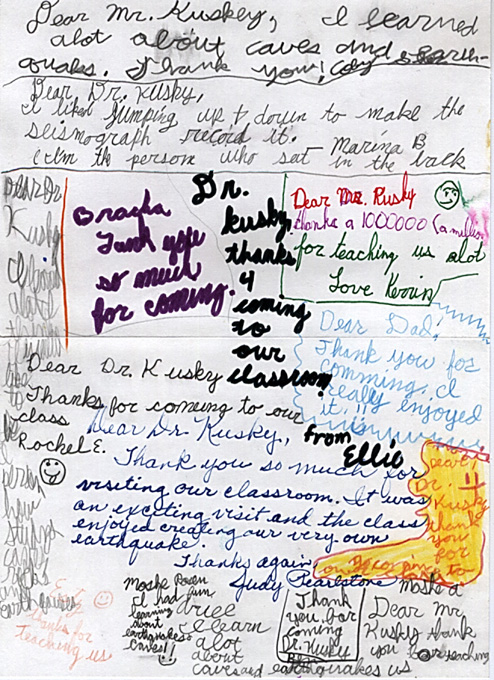 Dear Mr. Kuskey, I learned
alot about caves and earth-
quakes. Thank you! Cody
Dear, Dr. Kusky,
I liked jumping up & down to make the
seismograph record it.
Marina B
I'm the person who sat in the back
Dear Dr
Kusky
alot
Brayla
Tank you
so much
for coming.
Dr.
Kusky,
thanks
4
coming
to
our
classroom
from
Ellie
Dear Mr. Kusky
thanks a 1000000 (a million)
for teaching us alot
Love Kevin
Dear Dad,
Thank you for
comming. I
really enjoyed
it!!
Dear Dr. Kusky
Thanks for comeing to our
class
Rochel E.
Dear Dr. Kusky,
Thank you so much for
visiting our classroom. It was
an exciting visit and the class
enjoyed creating our very own
earthquake.
Thanks again
Judy Pearlstone
Dear
Dr.
Kusky
thank
you
for
to
our
earthquakes
thanks for
teaching us
Moshe Rosen
I had fun
learning
about
earthquakes &
caves!!
ariel
I learn
alot
about
caves and earthquakes
Thank
you for
coming
Dr. Kusky
Moshe a
Dear Mr
Kusky thank
you for teaching
us